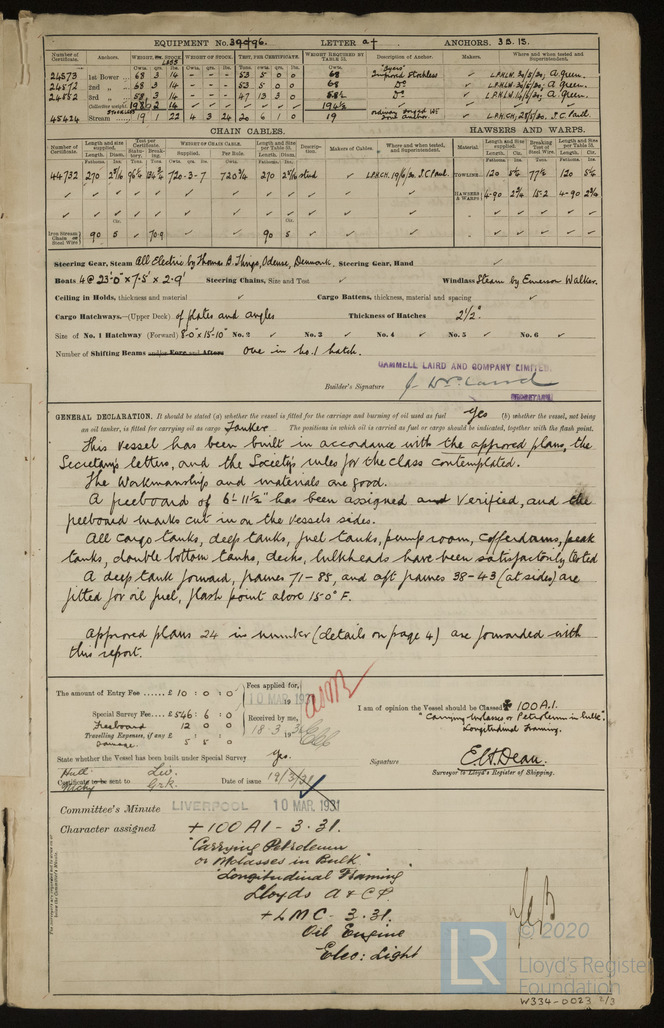 EQUIPMENT No. 39496. LETTER a† ANCHORS. 3 B. 1 S.
Number of Certificate. Anchors. WEIGHT, EX. STOCK. LESS WEIGHT OF STOCK. TEST, PER CERTIFICATE. WEIGHT REQUIRED BY TABLE 31. Description of Anchor. Makers. Where and when tested and Superintendent.
Cwts. qrs. lbs. Cwts. qrs. lbs. Tons. cwts. qrs. lbs. Cwts.
24573 1st Bower 68 3 14 - - - 53 5 0 0 68 "Byers" Improved Stockless ✓ L.P.H.L.W. 30/5/30; A. Green.
24572 2nd „ 68 3 14 - - - 53 5 0 0 68 Do ✓ L.P.H.L.W. 30/5/30; A. Green.
24552 3rd „ 58 3 14 - - - 47 13 3 0 58½ Do ✓ L.P.H.L.W. 14/5/30; A. Green.
Collective weight 196 2 14 194½
45424 Stream 19 1 22 4 3 24 20 6 1 0 19 ✓ L.P.H.CH; 28/5/30; J.C. Paul.
CHAIN CABLES. HAWSERS AND WARPS.
Number of Certificate. Length and size supplied. Test per Certificate. WEIGHT OF CHAIN CABLE. Length and Size per Table 31. Description. Makers of Cables. Where and when tested, and Superintendent. Material. Length and Size supplied. Breaking Test of Steel Wire. Length and Size per Table 31.
Length. Diam. Statutory. Breaking. Supplied. Per Rule. Length. Diam. Length. Cir. Length. Cir.
44732 270 2 9/16 96¼ 134¾ 720-3-7 720¾ 270 2 9/16 stud ✓ L.P.H.CH, 19/6/30 J.C. Paul. TOWLINE 120 5½ 77½ 120 5½
HAWSERS & WARPS 4-90 2¾ 15·2 4-90 2¾
Iron Stream Chain or Steel Wire 90 5 ✓ 70·9 90 5 ✓
Steering Gear, Steam All Electric by Thomas B. Thrige, Odense, Denmark. Steering Gear, Hand ✓
Boats 4 @ 23'0" x 7·5' x 2·9' Steering Chains, Size and Test ✓ Windlass Steam by Emerson Walker.
Ceiling in Holds, thickness and material ✓ Cargo Battens, thickness, material and spacing ✓
Cargo Hatchways.—(Upper Deck) of plates and angles Thickness of Hatches 2½".
Size of No. 1 Hatchway (Forward) 8-0" x 15-10" No. 2 ✓ No. 3 ✓ No. 4 ✓ No. 5 ✓ No. 6 ✓
Number of Shifting Beams and/or Fore and Afters one in No. 1 hatch.
CAMMELL LAIRD AND COMPANY LIMITED.
Builder's Signature
SECRETARY.
GENERAL DECLARATION. It should be stated (a) whether the vessel is fitted for the carriage and burning of oil used as fuel Yes (b) whether the vessel, not being
an oil tanker, is fitted for carrying oil as cargo Tanker The positions in which oil is carried as fuel or cargo should be indicated, together with the flash point.
This vessel has been built in accordance with the approved plans, the
Secretary's letters, and the Society's rules for the class contemplated.
The Workmanship and materials are good.
A freeboard of 6'-11½" has been assigned and verified, and the
freeboard marks cut in on the vessels sides.
All cargo tanks, deep tanks, fuel tanks, pump room, cofferdams, peak
tanks, double bottom tanks, decks, bulkheads have been satisfactorily tested
A deep tank forward, frames 71-85, and aft frames 38-43 (at sides) are
fitted for oil fuel, flash point above 150° F.
Approved plans 24 in number (details on page 4) are forwarded with
this report.
The amount of Entry Fee £ 10 : 0 : 0 Fees applied for, 10 MAR 1931
Special Survey Fee £ 546 : 6 : 0 Received by me,
Freeboard 12 0 0 18.3.31
Travelling Expenses, if any £
Damage. 5 5 0
I am of opinion the Vessel should be Classed ✠ 100 A.1.
"Carrying Molasses or Petroleum in bulk".
Longitudinal Framing.
State whether the Vessel has been built under Special Survey Yes. Signature E.H. Dean.
Surveyor to Lloyd's Register of Shipping.
Hull Liv.
Certificate to be sent to Date of issue 19/3/31
Mchy Grk.
Committee's Minute LIVERPOOL 10 MAR. 1931
Character assigned + 100 A1 - 3.31.
"Carrying Petroleum
or Molasses in Bulk"
"Longitudinal Framing
Lloyds A & C P.
+ LMC - 3.31.
Oil Engine
Elec: Light
LR
© 2020
Lloyd's Register
Foundation
W334-0023 2/3